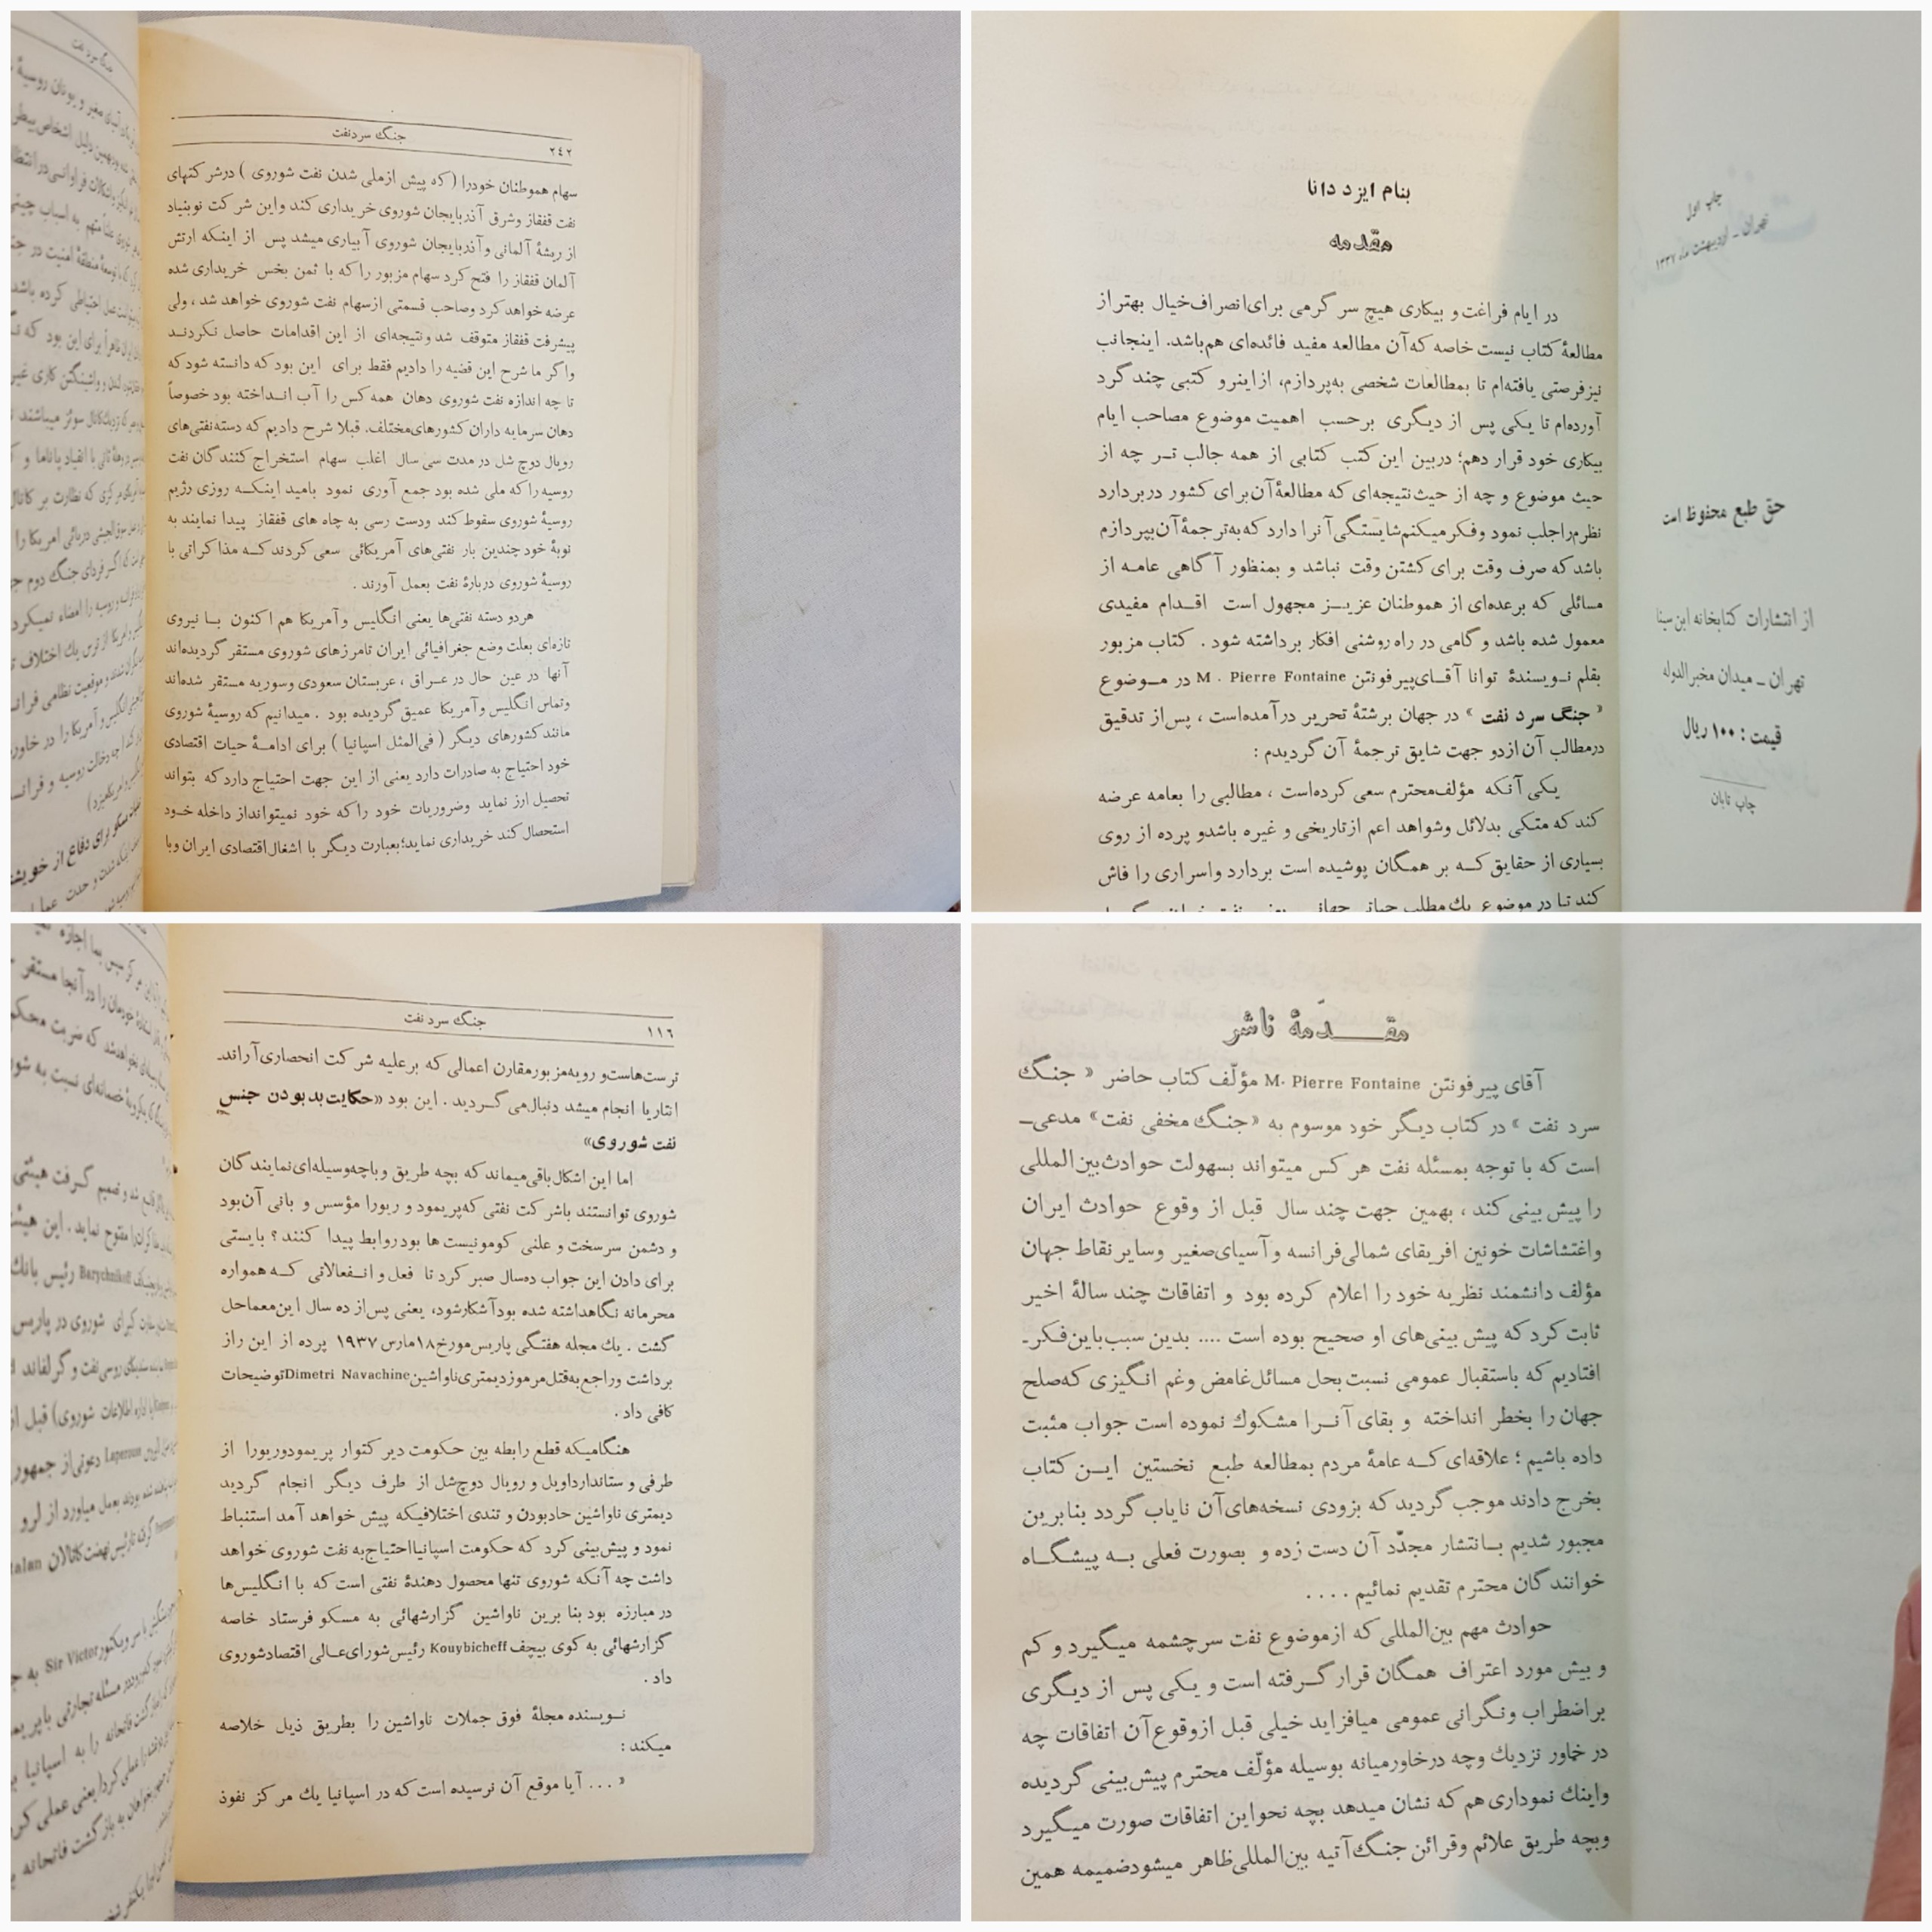 جنگ سرد نفت
۲٤۲
سهام هموطنان خودرا (که پیش ازملی شدن نفت شوروی) درشرکتهای
نفت قفقاز وشرق آذربایجان شوروی خریداری کند واین شرکت نوبنیاد
از ریشهٔ آلمانی وآذربایجان شوروی آبیاری میشد پس از اینکه ارتش
آلمان قفقاز را فتح کرد سهام مزبور را که با ثمن بخس خریداری شده
عرضه خواهد کرد وصاحب قسمتی ازسهام نفت شوروی خواهد شد، ولی
پیشرفت قفقاز متوقف شد ونتیجه‌ای از این اقدامات حاصل نکردند
واگر ما شرح این قضیه را دادیم فقط برای این بود که دانسته شود که
تا چه اندازه نفت شوروی دهان همه کس را آب انداخته بود خصوصاً
دهان سرمایه داران کشورهای‌مختلف. قبلا شرح دادیم که دسته‌نفتی‌های
رویال دوچ شل در مدت سی سال اغلب سهام استخراج کنندگان نفت
روسیه را که ملی شده بود جمع آوری نمود بامید اینکه روزی رژیم
روسیهٔ شوروی سقوط کند ودست رسی به چاه های قفقاز پیدا نمایند به
نوبهٔ خود چندین بار نفتی‌های آمریکائی سعی کردند که مذاکراتی با
روسیهٔ شوروی دربارهٔ نفت بعمل آورند.
هردو دسته نفتی‌ها یعنی انگلیس وآمریکا هم اکنون با نیروی
تازه‌ای بعلت وضع جغرافیائی ایران تامرزهای شوروی مستقر گردیده‌اند
آنها در عین حال در عراق، عربستان سعودی وسوریه مستقر شده‌اند
وتماس انگلیس وآمریکا عمیق گردیده بود. میدانیم که روسیهٔ شوروی
مانند کشورهای دیگر (فی‌المثل اسپانیا) برای ادامهٔ حیات اقتصادی
خود احتیاج به صادرات دارد یعنی از این جهت احتیاج دارد که بتواند
تحصیل ارز نماید وضروریات خود را که خود نمیتوانداز داخله خود
استحصال کند خریداری نماید؛بعبارت دیگر با اشغال‌اقتصادی ایران وبا
بنام ایزد دانا
مقدمه
در ایام فراغت و بیکاری هیچ سرگرمی برای‌انصراف‌خیال بهتر از
مطالعهٔ کتاب نیست خاصه که‌آن مطالعه مفید فائده‌ای هم‌باشد. اینجانب
نیزفرصتی یافته‌ام تا بمطالعات شخصی به‌پردازم، ازاینرو کتبی چند گرد
آورده‌ام تا یکی پس از دیگری برحسب اهمیت موضوع مصاحب ایام
بیکاری خود قرار دهم؛ دربین این کتب کتابی از همه جالب تر چه از
حیث موضوع و چه از حیث‌نتیجه‌ای که مطالعهٔ آن‌برای کشور دربردارد
نظرم‌راجلب نمود وفکرمیکنم‌شایستگی‌آنرا دارد که‌به‌ترجمهٔ آن‌بپردازم
باشد که صرف وقت برای کشتن وقت نباشد و بمنظور آگاهی عامه از
مسائلی که برعده‌ای از هموطنان عزیز مجهول است اقدام مفیدی
معمول شده باشد وگامی در راه روشنی افکار برداشته شود. کتاب مزبور
بقلم نویسندهٔ توانا آقای‌پیرفونتن M. Pierre Fontaine در موضوع
«جنگ سرد نفت» در جهان برشتهٔ تحریر درآمده‌است، پس‌از تدقیق
درمطالب آن‌ازدو جهت شایق ترجمهٔ آن گردیدم:
یکی آنکه مؤلف‌محترم سعی کرده‌است، مطالبی را بعامه عرضه
کند که متکی بدلائل وشواهد اعم ازتاریخی و غیره باشدو پرده از روی
بسیاری از حقایق که بر همگان پوشیده است بردارد واسراری را فاش
کند تا در موضوع یك مطلب حیاتی
چاپ اول
تهران ـ اردیبهشت ماه ۱۳۳۷
حق طبع محفوظ است
از انتشارات کتابخانه ابن سینا
تهران ـ میدان مخبرالدوله
قیمت: ۱۰۰ ریال
چاپ تابان
جنگ سرد نفت
۱۱٦
ترست‌هاست‌و رویه‌مزبورمقارن اعمالی که برعلیه شرکت انحصاری‌آراند
انتاریا انجام میشد دنبال‌می گردید. این بود «حکایت‌بدبودن جنس
نفت شوروی»
اما این اشکال‌باقی‌میماند که بچه طریق وباچه‌وسیله‌ای‌نمایندگان
شوروی توانستند باشرکت نفتی که‌پریمود و ریورا مؤسس و بانی آن‌بود
و دشمن سرسخت و علنی کومونیست ها بودروابط پیدا کنند؟ بایستی
برای دادن این جواب ده‌سال صبر کرد تا فعل و انفعالاتی که همواره
محرمانه نگاهداشته شده بودآشکارشود، یعنی پس‌از ده سال این‌معماحل
گشت. یك مجله هفتگی پاریس‌مورخ۱۸مارس ۱۹۳۷ پرده از این راز
برداشت وراجع‌به‌قتل‌مرموزدیمتری‌ناواشینDimetri Navachineتوضیحات
کافی داد.
هنگامیکه قطع رابطه بین حکومت دیرکتوار پریمودوریورا از
طرفی و ستانداردأویل و رویال دوچ‌شل از طرف دیگر انجام گردید
دیمتری ناواشین حادبودن و تندی اختلافیکه پیش خواهد آمد استنباط
نمود و پیش‌بینی کرد که حکومت اسپانیااحتیاج‌به نفت شوروی خواهد
داشت چه آنکه شوروی تنها محصول دهندهٔ نفتی است که با انگلیس‌ها
در مبارزه بود بنا برین ناواشین گزارشهائی به مسکو فرستاد خاصه
گزارشهائی به کوی بیچف Kouybicheff رئیس‌شورای‌عالی اقتصادشوروی
داد.
نویسنده مجلهٔ فوق جملات ناواشین را بطریق ذیل خلاصه
میکند:
«... آیا موقع آن نرسیده است که در اسپانیا یك مرکز نفوذ
مقدّمهٔ ناشر
آقای پیرفونتن M. Pierre Fontaine مؤلّف کتاب حاضر «جنگ
سرد نفت» در کتاب دیگر خود موسوم به «جنگ مخفی نفت» مدعی‌ـ
است که با توجه بمسئله نفت هر کس میتواند بسهولت حوادث‌بین‌المللی
را پیش بینی کند، بهمین جهت چند سال قبل از وقوع حوادث ایران
واغتشاشات خونین افریقای شمالی‌فرانسه وآسیای‌صغیر وسایر نقاط جهان
مؤلف دانشمند نظریه خود را اعلام کرده بود و اتفاقات چند سالهٔ اخیر
ثابت کرد که پیش بینی‌های او صحیح بوده است .... بدین سبب‌باین‌فکرـ
افتادیم که باستقبال عمومی نسبت‌بحل مسائل‌غامض وغم انگیزی که‌صلح
جهان را بخطر انداخته و بقای آنرا مشکوك نموده است جواب مثبت
داده باشیم؛ علاقه‌ای که عامهٔ مردم بمطالعه طبع نخستین این کتاب
بخرج دادند موجب گردید که بزودی نسخه‌های‌آن نایاب گردد بنابرین
مجبور شدیم بانتشار مجدّد آن دست زده و بصورت فعلی به پیشگاه
خوانندگان محترم تقدیم نمائیم ....
حوادث مهم بین‌المللی که ازموضوع نفت سرچشمه میگیرد و کم
و بیش مورد اعتراف همگان قرار گرفته است و یکی پس از دیگری
براضطراب ونگرانی عمومی میافزاید خیلی قبل ازوقوع‌آن اتفاقات چه
در خاور نزدیك وچه درخاورمیانه بوسیله مؤلّف محترم پیش‌بینی گردیده
واینك نموداری هم که نشان میدهد بچه نحواین اتفاقات صورت میگیرد
وبچه طریق علائم وقرائن جنگ‌آتیه بین‌المللی‌ظاهر میشودضمیمه همین